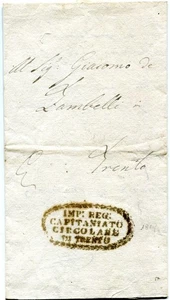 Al Sig.r Giacomo de
Lambelli
Trento
IMP. REG.
CAPITANIATO
CIRCOLARE
DI TRENTO